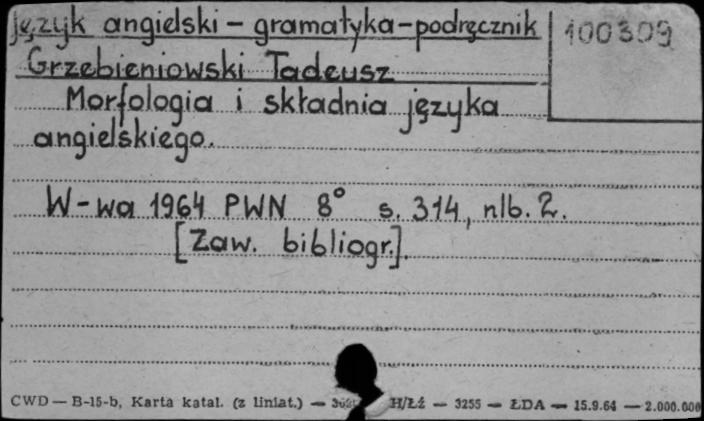 język angielski - gramatyka - podręcznik
100309
Grzebieniowski Tadeusz
Morfologia i składnia języka
angielskiego.
W-wa 1964 PWN 8° s. 314, nlb. 2.
[Zaw. bibliogr.].
CWD — B-15-b, Karta katal. (z liniat.) — H/Łż — 3255 — ŁDA — 15.9.64 — 2.000.000